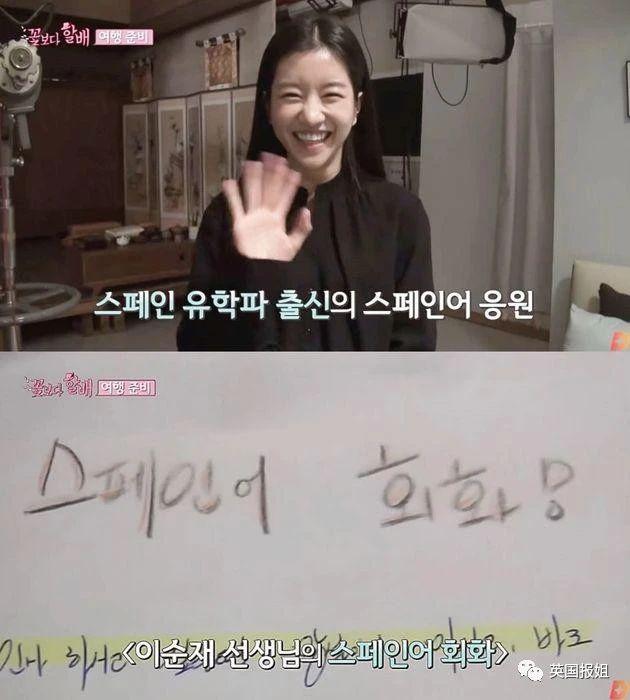 꽃보다 할배 여행 준비
스페인 유학파 출신의 스페인어 응원
꽃보다 할배 여행 준비
스페인어 회화
인사 하시고
바로
<이순재 선생님의 스페인어 회화>
英国报姐